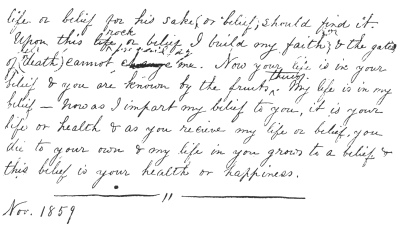 life or belief for his sake, or belief, should find it
Upon this rock life or belief I build my faith, & the gates
of (death) cannot change me. Now your life is in your
belief & you are known by the fruits thereof. My life is in my
belief — now as I impart my belief to you, it is your
life or health & as you recieve my life or belief, you
die to your own & my life in you grows to a belief &
this belief is your health or happiness.
Nov. 1859